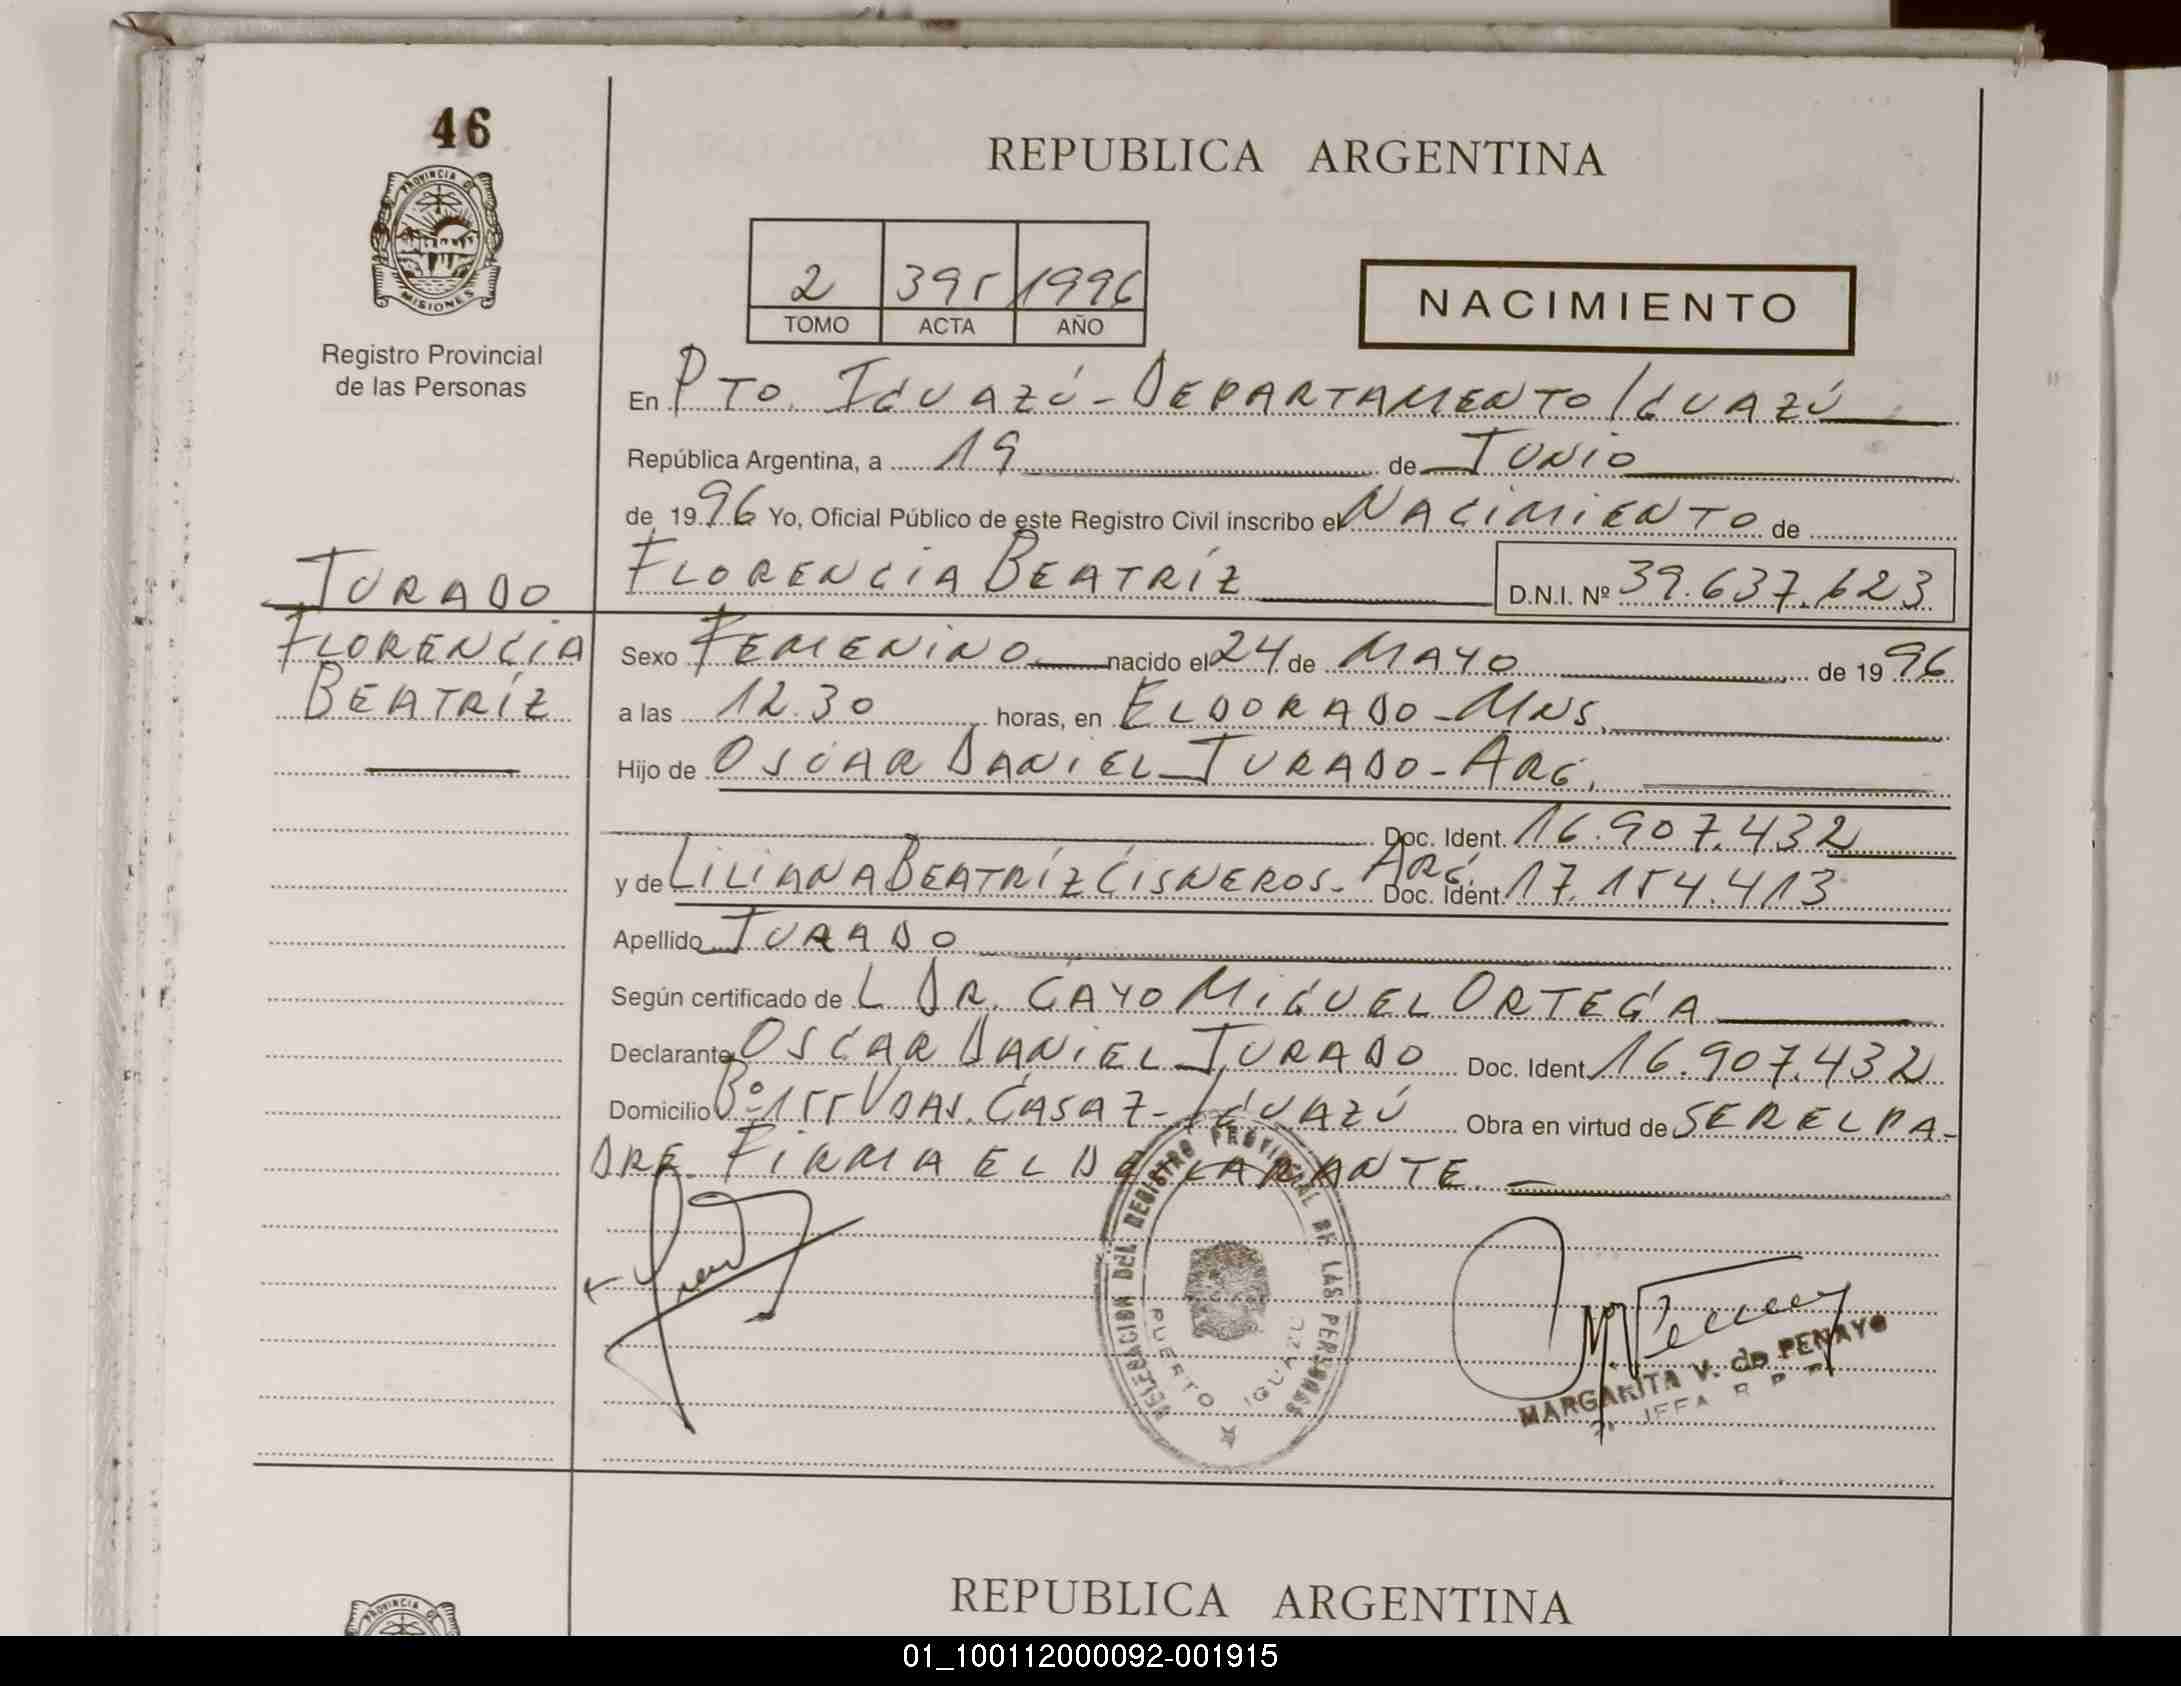 46
PROVINCIA DE
MISIONES
Registro Provincial
de las Personas
REPUBLICA ARGENTINA
2 395 1996
TOMO ACTA AÑO
NACIMIENTO
En PTO. IGUAZÚ - DEPARTAMENTO IGUAZÚ
República Argentina, a 19 de JUNIO
de 1996 Yo, Oficial Público de este Registro Civil inscribo el NACIMIENTO de
FLORENCIA BEATRÍZ D.N.I. Nº 39.637.623
JURADO
FLORENCIA
BEATRÍZ
Sexo FEMENINO nacido el 24 de MAYO de 1996
a las 12.30 horas, en ELDORADO - MNS.
Hijo de OSCAR DANIEL JURADO - ARG.
Doc. Ident. 16.907.432
y de LILIANA BEATRÍZ CISNEROS - ARG. Doc. Ident. 17.154.413
Apellido JURADO
Según certificado de L DR. CAYO MIGUEL ORTEGA
Declarante OSCAR DANIEL JURADO Doc. Ident. 16.907.432
Domicilio Bº 155 VDAS. CASA 7 - IGUAZÚ Obra en virtud de SER EL PA-
DRE. FIRMA EL DECLARANTE.
DELEGACION DEL REGISTRO PROVINCIAL DE LAS PERSONAS
PUERTO IGUAZU
MARGARITA V. de PENAYO
JEFA R. P. P.
REPUBLICA ARGENTINA
PROVINCIA DE
01_100112000092-001915